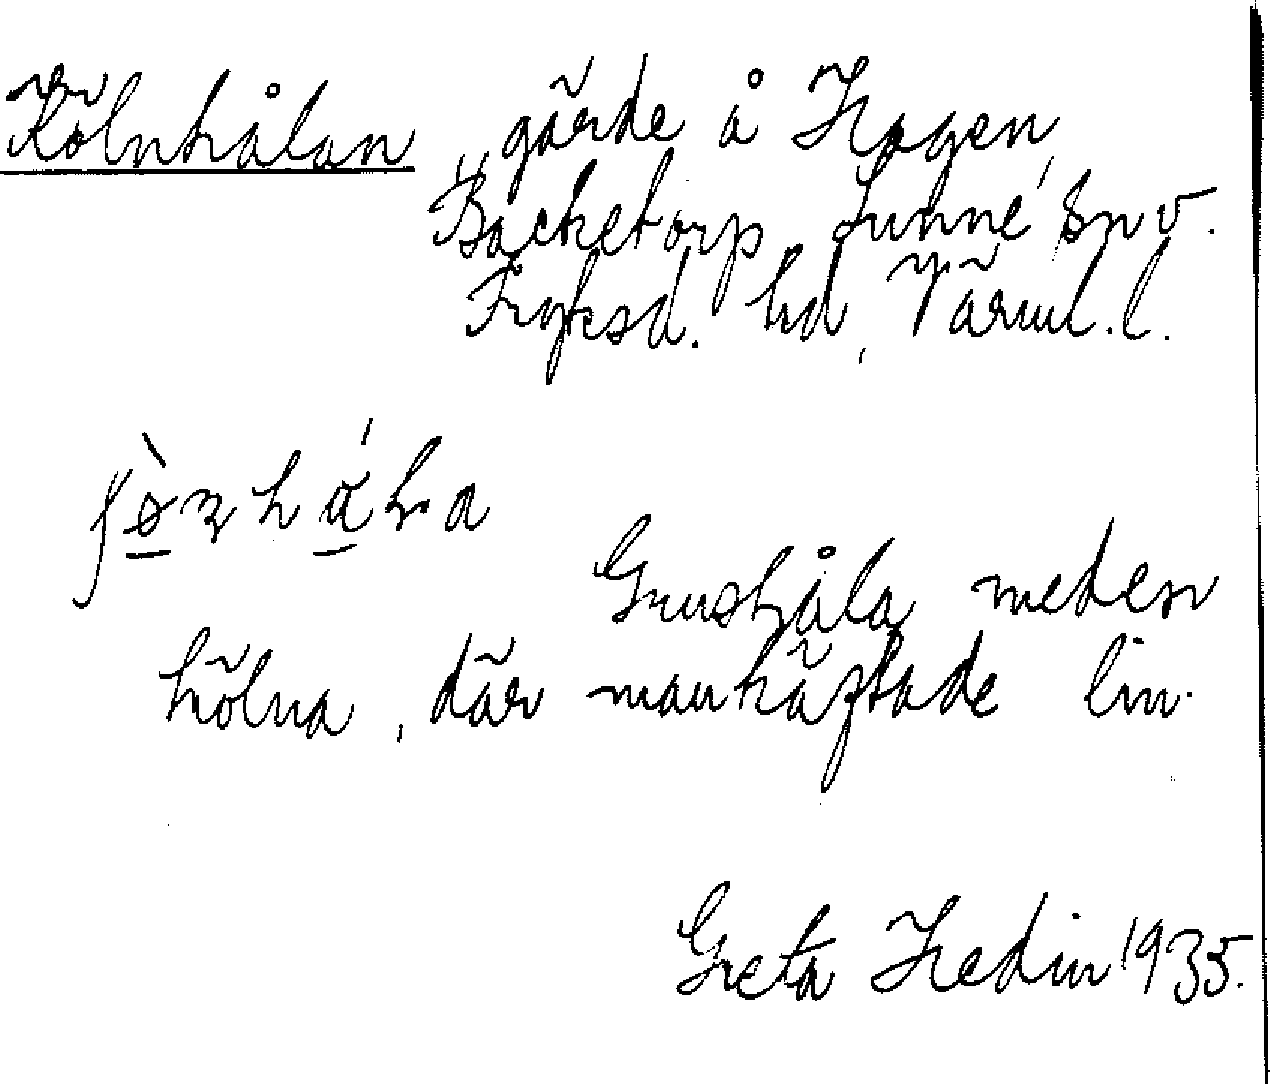 Kölnhålan, gärde å Hagen,
Bäcketorp, Sunne sn v.
Fryksd. hd, Värml. l.
Grushåla meden
kölna, där man käftade lin.
Greta Hedin 1935.